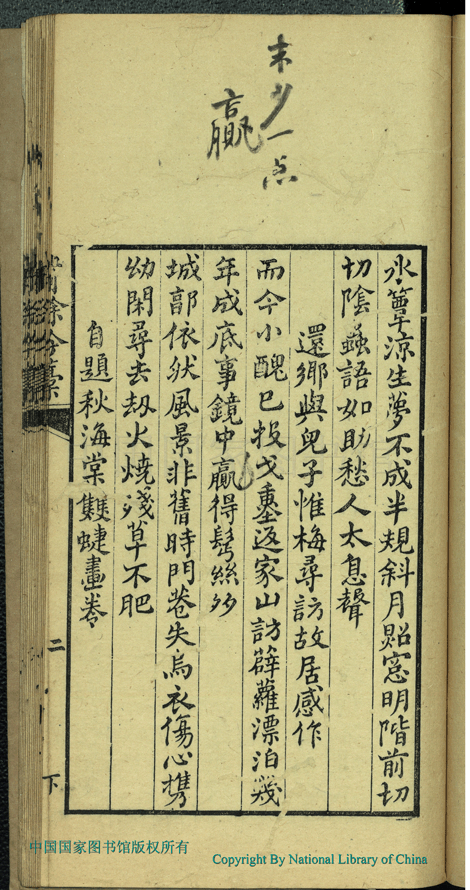 末少一点
赢
冰簟涼生夢不成半規斜月照窓明階前切
切陰蟲語如助愁人太息聲
還鄉與兒子惟梅尋訪故居感作
而今小醜已投戈重返家山訪薜蘿漂泊幾
年成底事鏡中贏得鬂絲多
城郭依然風景非舊時門巷失烏衣傷心携
幼閑尋去劫火燒殘草不肥
自題秋海棠雙蜨畫卷
餘今藁
二
下
中国国家图书馆版权所有
Copyright By National Library of China